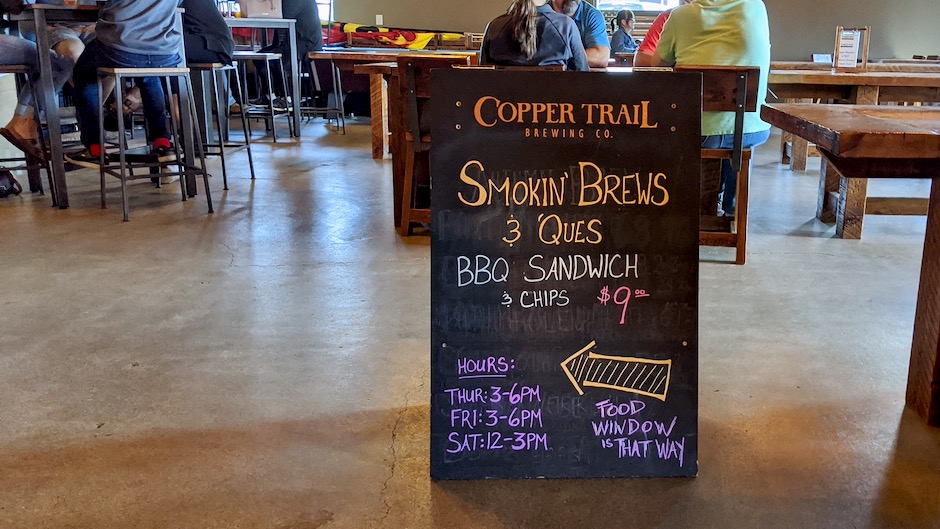 COPPER TRAIL
BREWING CO.
SMOKIN' BREWS
& 'QUES
BBQ SANDWICH
& CHIPS $9.00
HOURS:
THUR: 3-6PM
FRI: 3-6PM
SAT: 12-3PM
FOOD
WINDOW
IS THAT WAY